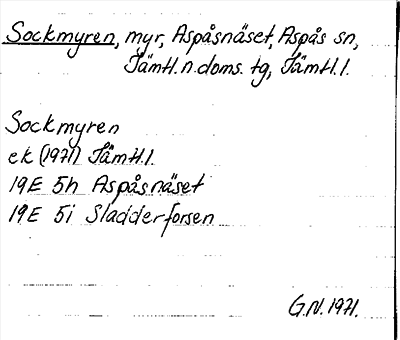 Sockmyren, myr, Aspåsnäset, Aspås sn,
Jämtl. n. doms. tg, Jämtl. l.
Sockmyren
ek (1971) Jämtl. l.
19E 5h Aspåsnäset
19E 5i Sladderforsen
G.N. 1971.